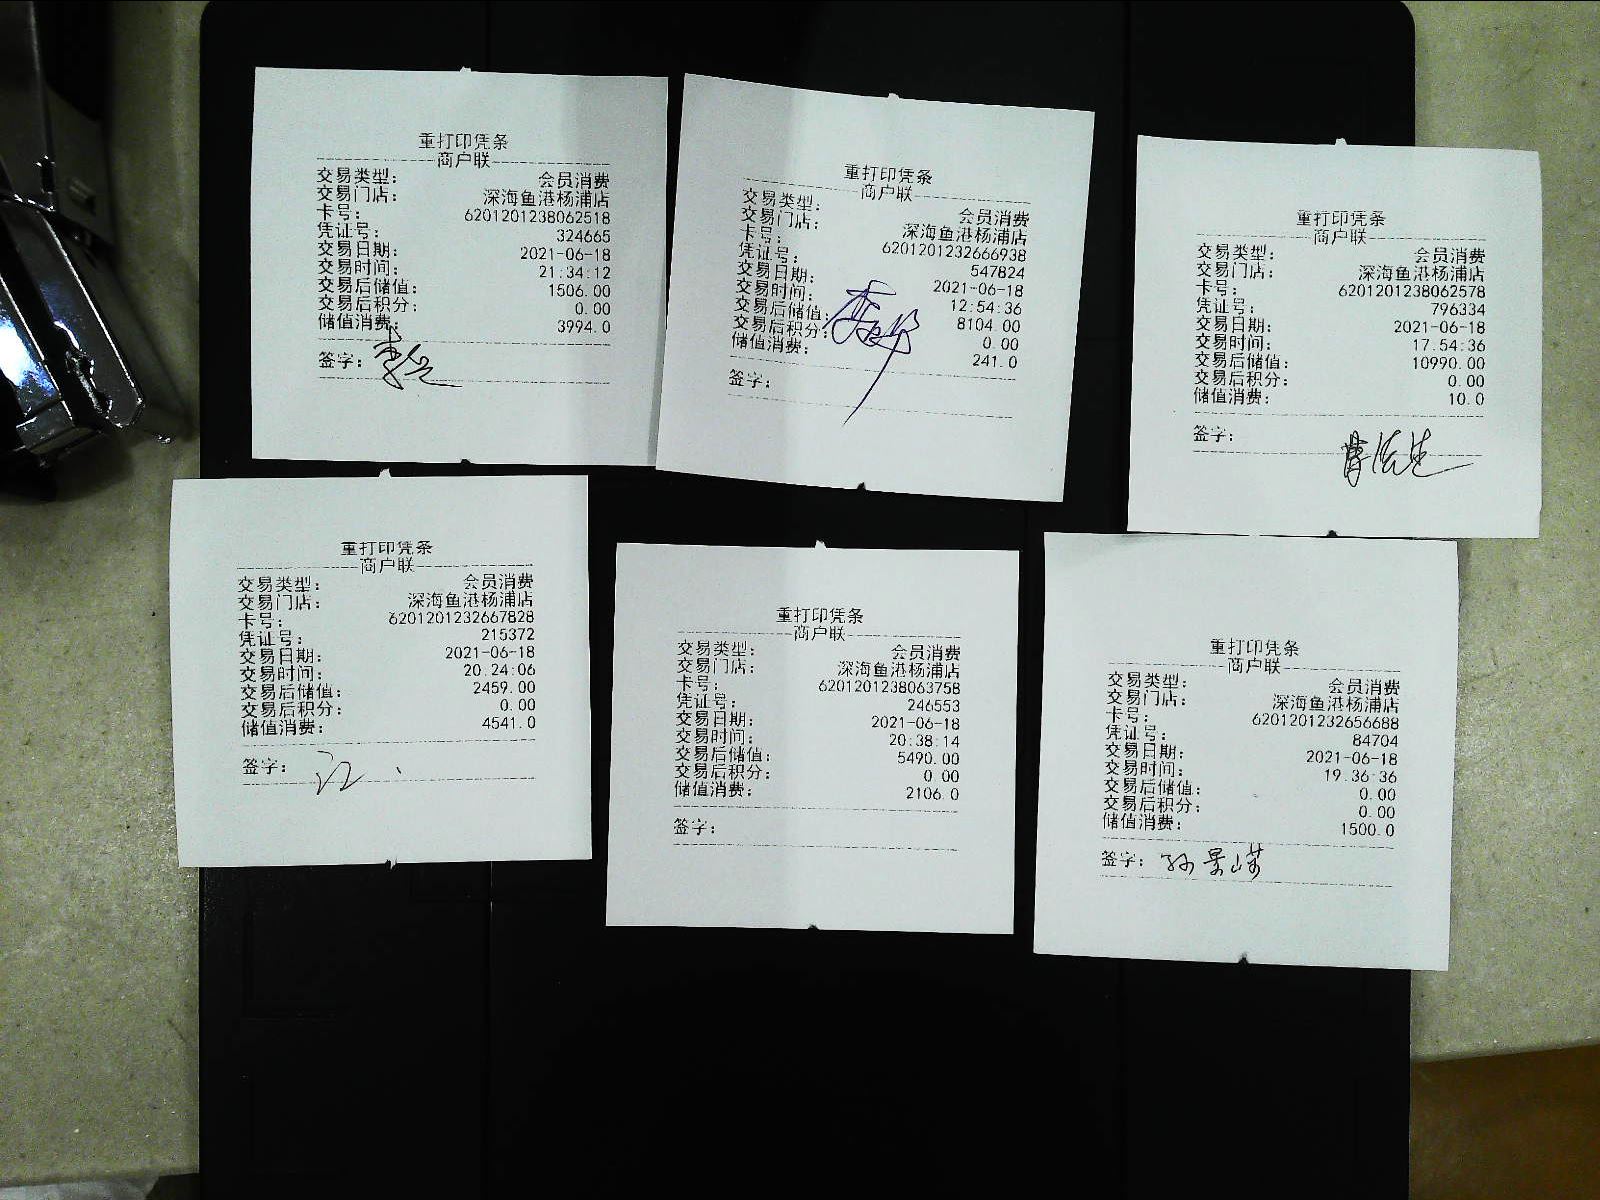 重打印凭条
商户联
交易类型： 会员消费
交易门店： 深海鱼港杨浦店
卡号： 6201201238062518
凭证号： 324665
交易日期： 2021-06-18
交易时间： 21:34:12
交易后储值： 1506.00
交易后积分： 0.00
储值消费： 3994.0
签字：
重打印凭条
商户联
交易类型： 会员消费
交易门店： 深海鱼港杨浦店
卡号： 6201201232666938
凭证号： 547824
交易日期： 2021-06-18
交易时间： 12:54:36
交易后储值： 8104.00
交易后积分： 0.00
储值消费： 241.0
签字：
重打印凭条
商户联
交易类型： 会员消费
交易门店： 深海鱼港杨浦店
卡号： 6201201238062578
凭证号： 796334
交易日期： 2021-06-18
交易时间： 17:54:36
交易后储值： 10990.00
交易后积分： 0.00
储值消费： 10.0
签字：
重打印凭条
商户联
交易类型： 会员消费
交易门店： 深海鱼港杨浦店
卡号： 6201201232667828
凭证号： 215372
交易日期： 2021-06-18
交易时间： 20:24:06
交易后储值： 2459.00
交易后积分： 0.00
储值消费： 4541.0
签字：
重打印凭条
商户联
交易类型： 会员消费
交易门店： 深海鱼港杨浦店
卡号： 6201201238063758
凭证号： 246553
交易日期： 2021-06-18
交易时间： 20:38:14
交易后储值： 5490.00
交易后积分： 0.00
储值消费： 2106.0
签字：
重打印凭条
商户联
交易类型： 会员消费
交易门店： 深海鱼港杨浦店
卡号： 6201201232656688
凭证号： 84704
交易日期： 2021-06-18
交易时间： 19:36:36
交易后储值： 0.00
交易后积分： 0.00
储值消费： 1500.0
签字：